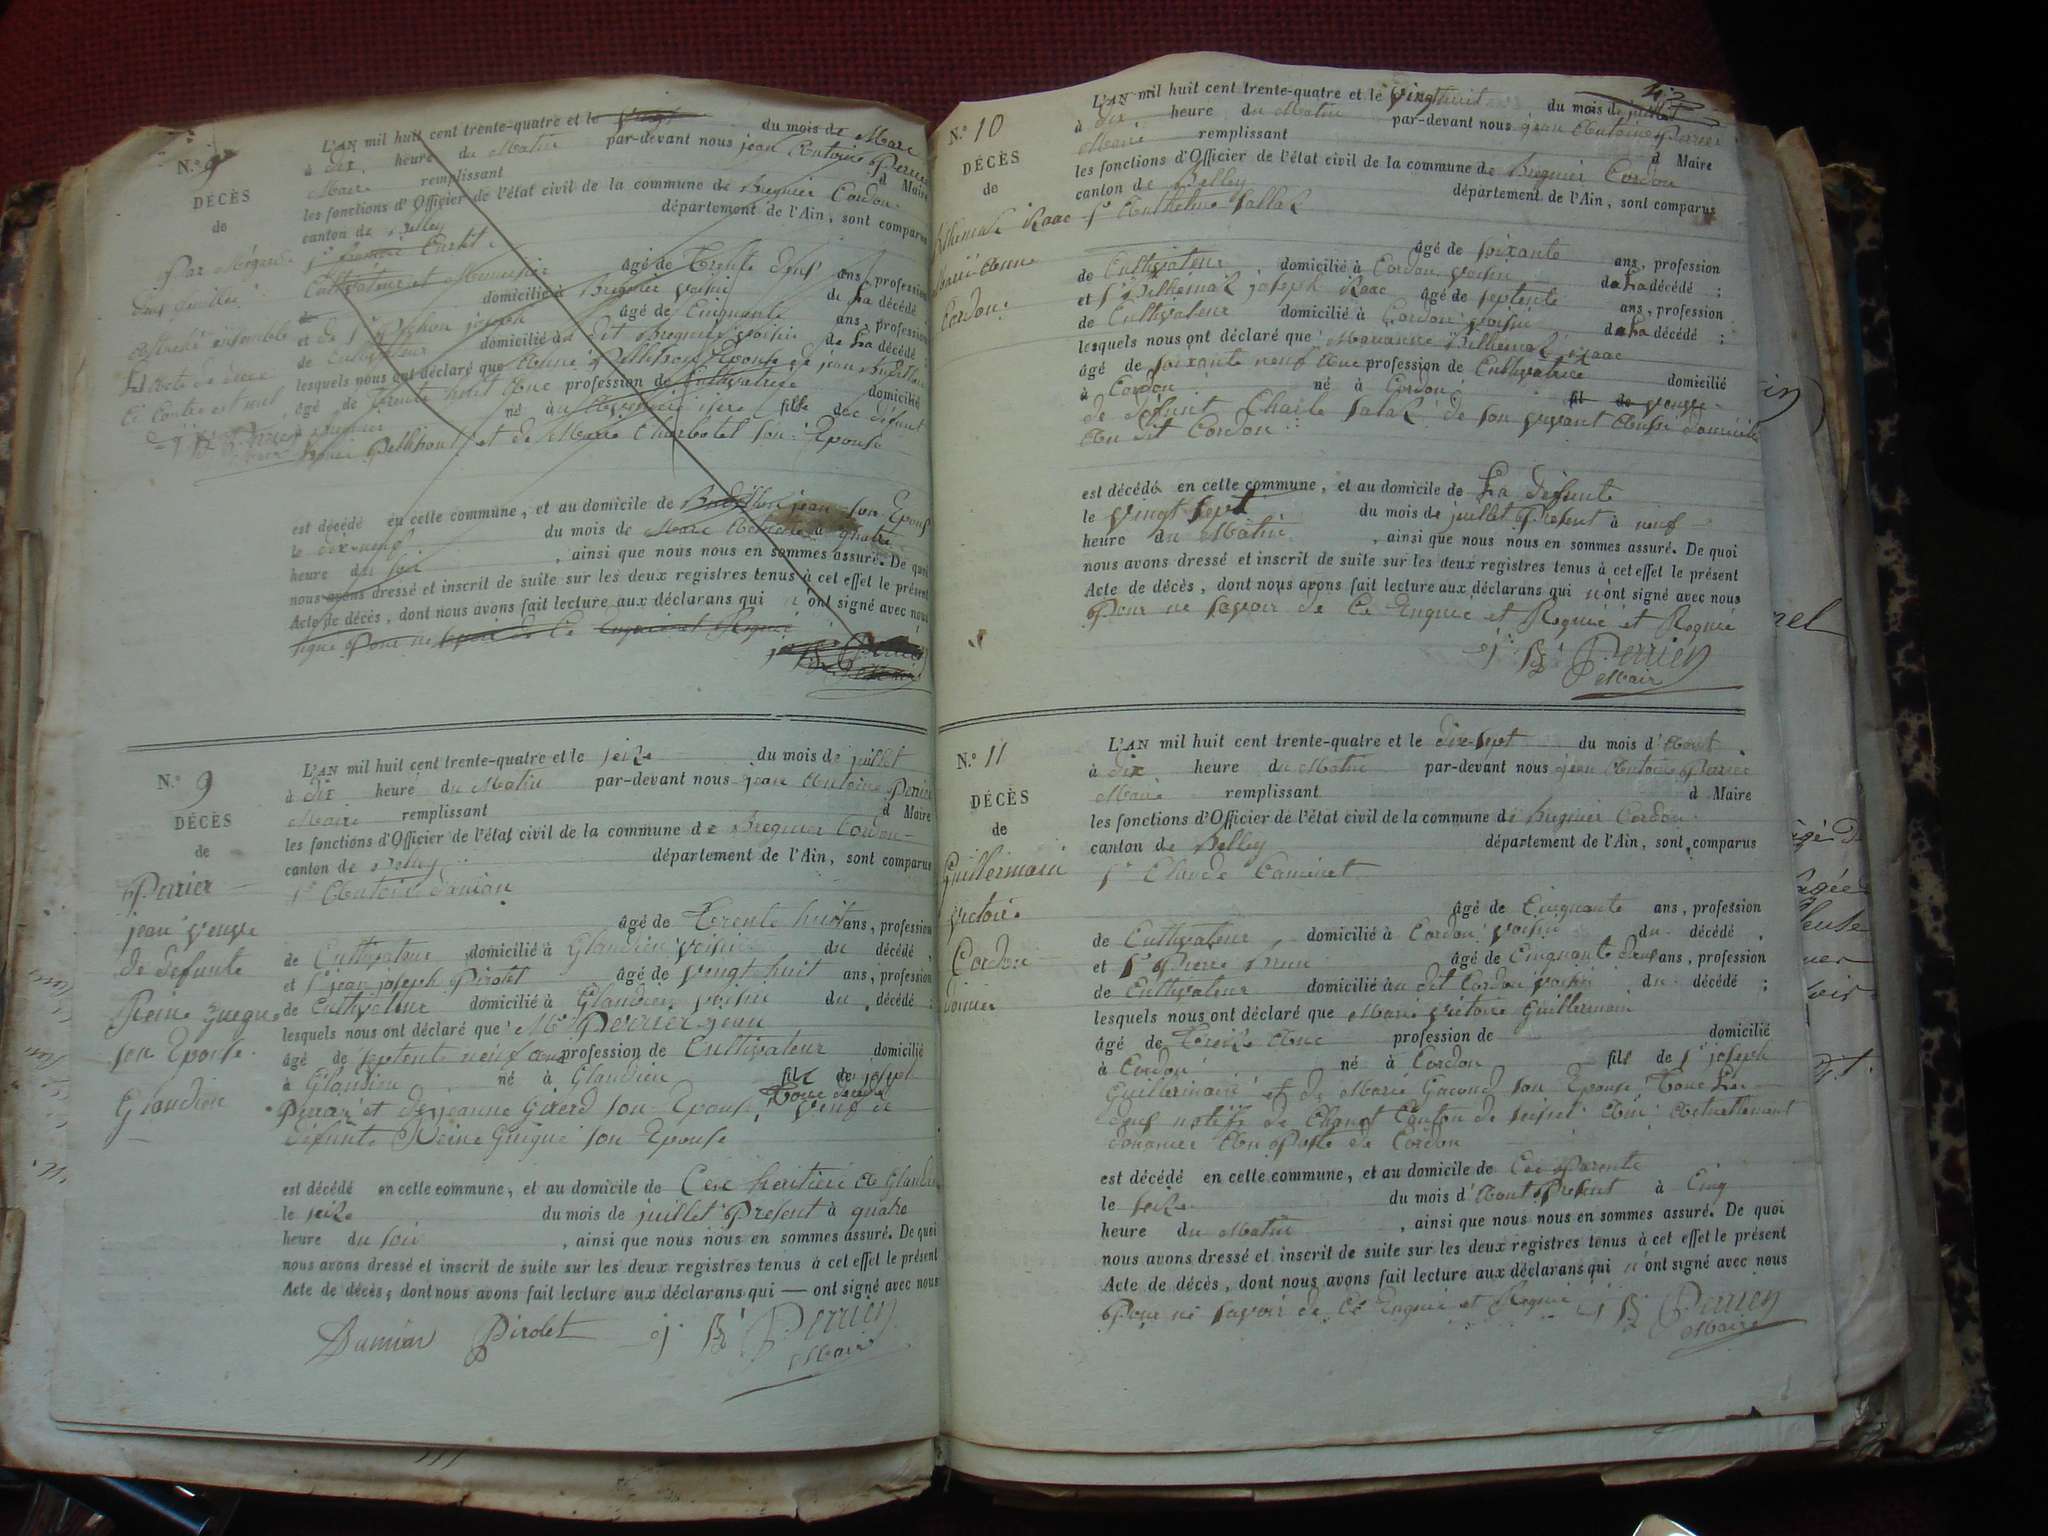 N.° 9
DÉCÈS
de
Par Mégarde
ensemble
L'AN mil huit cent trente-quatre et le vingt du mois de Mars
à dix heure du Matin par-devant nous jean Antoine Perrier
Maire remplissant d Maire
les fonctions d'Officier de l'état civil de la commune de Bregnier Cordon
canton de Belley département de l'Ain, sont comparus
âgé de Trente deuf ans, profession
Cultivateur et domicilié à Bregnier voisin de La décédé
et de joseph âgé de Cinquante ans, profession
de Cultivateur domicilié au dit Bregnier voisin de La décédé ;
lesquels nous ont déclaré que Anne Epouse de jean
âgé de trente huit Anc profession de Cultivatrice domicilié
né à fille de défunt
et de Marie Charbotel son Epouse
est décédé en cette commune, et au domicile de jean son Epouf
le dix-neuf du mois de Mars à quatre
heure du soir , ainsi que nous nous en sommes assuré. De quoi
nous avons dressé et inscrit de suite sur les deux registres tenus à cet effet le présent
Acte de décès, dont nous avons fait lecture aux déclarans qui n'ont signé avec nous
signé Pour ne savoir de Ce Enquis et Requis
Perrier
N.° 9
DÉCÈS
de
Perrier
jean veuve
de defunte
Reine guigue
son Epouse
Glandieu
L'AN mil huit cent trente-quatre et le seize du mois de juillet
à dix heure du Matin par-devant nous jean Antoine Perrier
Maire remplissant d Maire
les fonctions d'Officier de l'état civil de la commune de Bregnier Cordon
canton de Belley département de l'Ain, sont comparus
Sr Antoine Damian
âgé de Trente huit ans, profession
de Cultivateur domicilié à Glandieu voisin du décédé ;
et Sr jean joseph Pirolet âgé de vingt huit ans, profession
de Cultivateur domicilié à Glandieu voisin du décédé ;
lesquels nous ont déclaré que Perrier jean
âgé de septente neuf ans profession de Cultivateur domicilié
à Glandieu né à Glandieu fils de joseph
Perrier et de jeanne girerd son Epouse Tous décédé veuf de
défunte Reine Guigue son Epouse
est décédé en cette commune, et au domicile de Ces héritiers à Glandieu
le seize du mois de juillet Présent à quatre
heure du soir , ainsi que nous nous en sommes assuré. De quoi
nous avons dressé et inscrit de suite sur les deux registres tenus à cet effet le présent
Acte de décès, dont nous avons fait lecture aux déclarans qui — ont signé avec nous
Damian Pirolet Perrier
Maire
N.° 10
DÉCÈS
de
Marie Anne
Cordon
L'AN mil huit cent trente-quatre et le vingt huit du mois de juillet
à dix heure du Matin par-devant nous jean Antoine Perrier
Maire remplissant d Maire
les fonctions d'Officier de l'état civil de la commune de Bregnier Cordon
canton de Belley département de l'Ain, sont comparus
Sr Anthelme Sallaz
âgé de soixante ans, profession
de Cultivateur domicilié à Cordon voisin de La décédé ;
et Sr Dithemaz joseph Raac âgé de septente ans, profession
de Cultivateur domicilié à Cordon voisin de La décédé ;
lesquels nous ont déclaré que Marianne Dithemaz Raac
âgé de soixante neuf Anc profession de Cultivatrice domicilié
à Cordon né à Cordon fil de veuve
de défunt Charle Salaz de son vivant Aussi domicilié
Au dit Cordon
est décédé en cette commune, et au domicile de La défunte
le vingt sept du mois de juillet Présent à neuf
heure du Matin , ainsi que nous nous en sommes assuré. De quoi
nous avons dressé et inscrit de suite sur les deux registres tenus à cet effet le présent
Acte de décès, dont nous avons fait lecture aux déclarans qui n'ont signé avec nous
Pour ne savoir de Ce Enquis et Requis et Requis
Perrier
Maire
N.° 11
DÉCÈS
de
Guillermain
victoire
Cordon
L'AN mil huit cent trente-quatre et le dix-sept du mois d'Aout
à dix heure du Matin par-devant nous jean Antoine Perrier
Maire remplissant d Maire
les fonctions d'Officier de l'état civil de la commune de Bregnier Cordon
canton de Belley département de l'Ain, sont comparus
Sr Claude Caminet
âgé de Cinquante ans, profession
de Cultivateur domicilié à Cordon voisin du décédé
et Sr Pierre Brun âgé de Cinquante deuf ans, profession
de Cultivateur domicilié au dit Cordon voisin du décédé ;
lesquels nous ont déclaré que Marie victoire Guillermain
âgé de Treize Anc profession de domicilié
à Cordon né à Cordon fils de Sr joseph
Guillermain et de Marie Gacond son Epouse Tous Les
deuf natifs de Chanaz Canton de Seissel Ain Actuellement
douanier Au Poste de Cordon
est décédé en cette commune, et au domicile de Ces Parents
le seize du mois d'Aout Présent à Cinq
heure du Matin , ainsi que nous nous en sommes assuré. De quoi
nous avons dressé et inscrit de suite sur les deux registres tenus à cet effet le présent
Acte de décès, dont nous avons fait lecture aux déclarans qui n'ont signé avec nous
Pour ne savoir de Ce Enquis et Requis Perrier
Maire